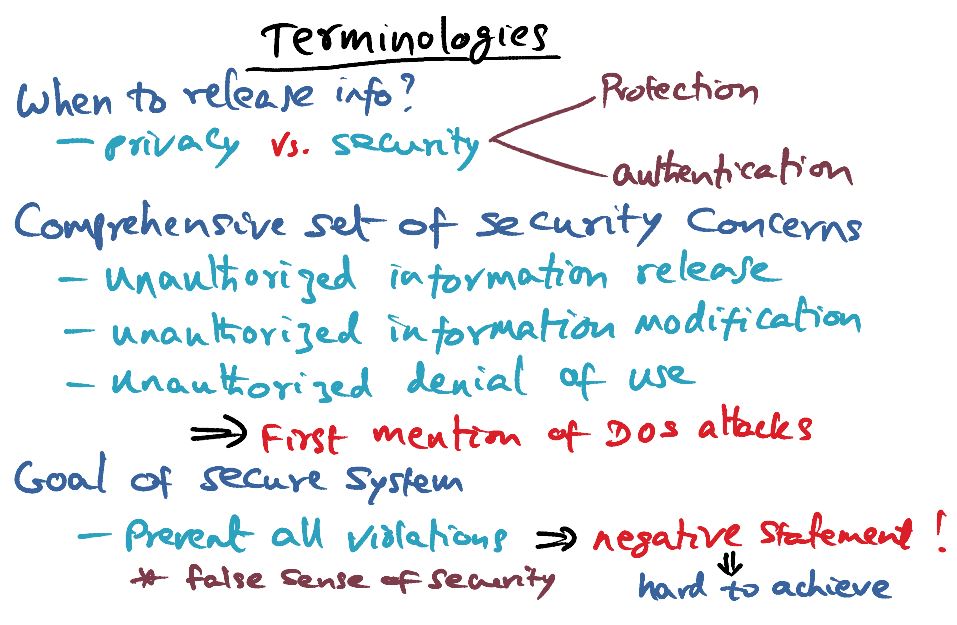 Terminologies
When to release info?
– privacy vs. security
Protection
authentication
Comprehensive set of security concerns
– unauthorized information release
– unauthorized information modification
– unauthorized denial of use
⇒ First mention of DOS attacks
Goal of secure system
– Prevent all violations ⇒ negative statement!
* false sense of security
⇓
hard to achieve